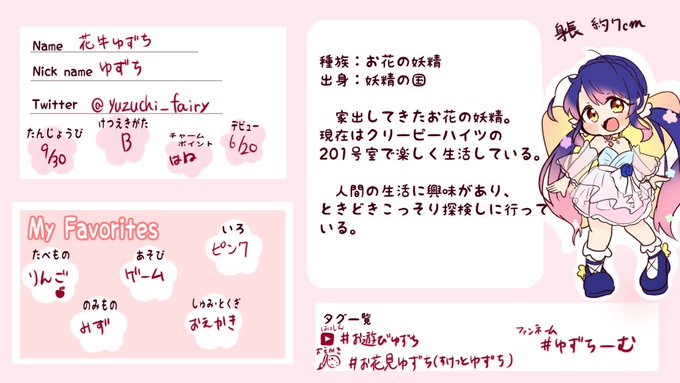 Name 花牛ゆずち
Nick name ゆずち
Twitter @yuzuchi_fairy
たんじょうび 9/30
けつえきがた B
チャームポイント はね
デビュー 6/20
My Favorites
たべもの りんご
あそび ゲーム
いろ ピンク
のみもの みず
しゅみ・とくぎ おえかき
身長 約7cm
種族：お花の妖精
出身：妖精の国
家出してきたお花の妖精。
現在はクリーピーハイツの
201号室で楽しく生活している。
人間の生活に興味があり、
ときどきこっそり探検しに行って
いる。
タグ一覧
はいしん
#お遊びゆずち
おえかき
#お花見ゆずち(おけっとゆずち)
ファンネーム
#ゆずちーむ